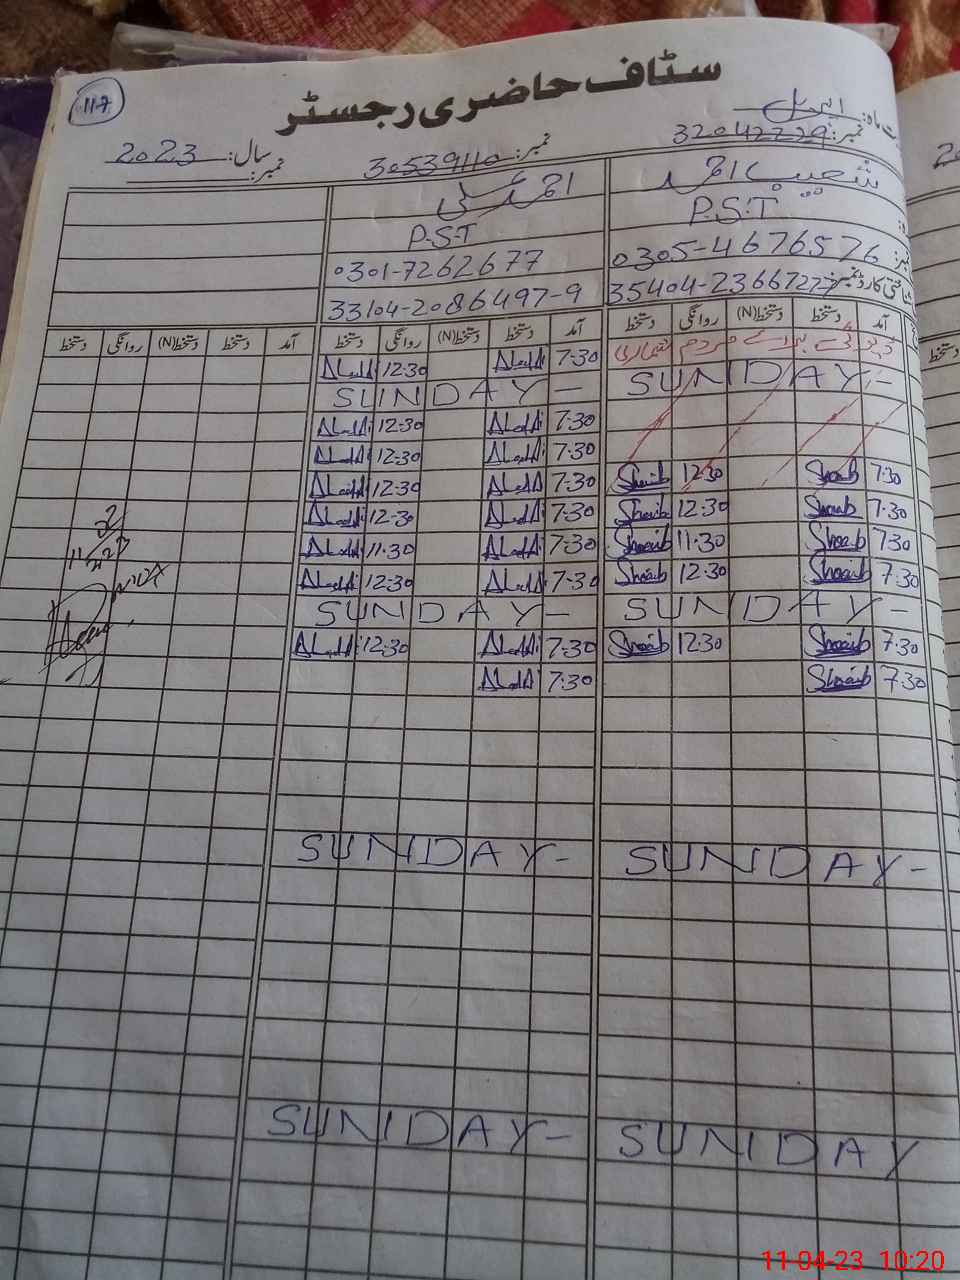 117
سٹاف حاضری رجسٹر
ماہ: اپریل
نمبر: 32042229 نمبر: 30539110 سال: 2023 نمبر:
شعیب احمد احمد علی
P.S.T P.S.T
0305-4676576 0301-7262677
شناختی کارڈ نمبر: 35404-2366722-7 33104-2086497-9
آمد دستخط دستخط(N) روانگی دستخط آمد دستخط دستخط(N) روانگی دستخط آمد دستخط دستخط(N) روانگی دستخط
ڈیوٹی برائے مردم شماری 7:30 12:30
SUNDAY- SUNDAY-
7:30 12:30
7:30 12:30
7:30 Shoaib 12:30 Shoaib 7:30 12:30
7:30 Shoaib 12:30 Shoaib 7:30 12:30
7:30 Shoaib 11:30 Shoaib 7:30 11:30
7:30 Shoaib 12:30 Shoaib 7:30 12:30
SUNDAY- SUNDAY-
7:30 Shoaib 12:30 Shoaib 7:30 12:30
7:30 Shoaib 7:30
SUNDAY- SUNDAY-
SUNDAY- SUNDAY
11-04-23 10:20